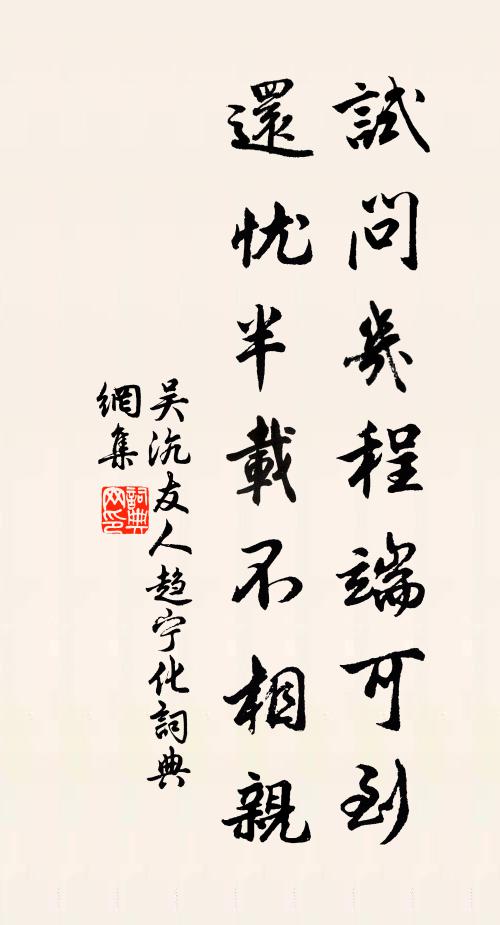 試問幾程端可到
還忧半載不相親
吴沆友人趋宁化詞典
網集
詞典网印